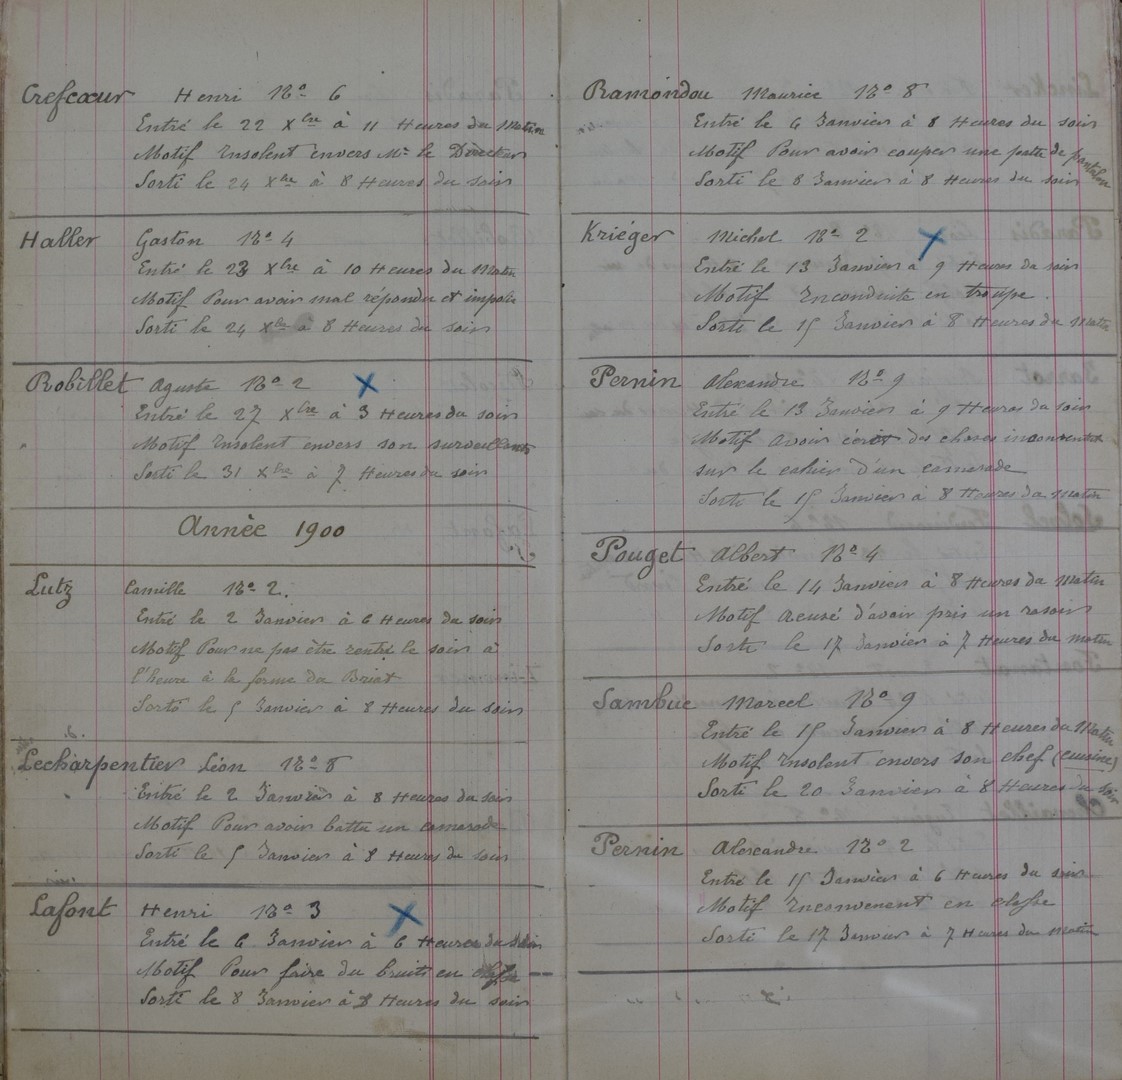 Crefcœur Henri No 6
Entré le 22 Xbre à 11 Heures du Matin
Motif Insolent envers Mr le Directeur
Sorti le 24 Xbre à 8 Heures du soir
Haller Gaston No 4
Entré le 23 Xbre à 10 Heures du Matin
Motif Pour avoir mal répondu et impolie
Sorti le 24 Xbre à 8 Heures du soir
Robillet Aguste No 2
Entré le 27 Xbre à 3 Heures du soir
Motif Insolent envers son surveillants
Sorti le 31 Xbre à 7 Heures du soir
Année 1900
Lutz Camille No 2.
Entré le 2 Janvier à 6 Heures du soir
Motif Pour ne pas être rentré le soir à
l'heure à la ferme du Briat
Sorti le 5 Janvier à 8 Heures du soir
Lecharpentier Léon No 8
Entré le 2 Janvier à 8 Heures du soir
Motif Pour avoir battu un camarade
Sorti le 5 Janvier à 8 Heures du soir
Lafont Henri No 3
Entré le 6 Janvier à 6 Heures du soir
Motif Pour faire du bruit en classe
Sorti le 8 Janvier à 8 Heures du soir
Ramondou Maurice No 8
Entré le 6 Janvier à 8 Heures du soir
Motif Pour avoir couper une patte de pantalon
Sorti le 8 Janvier à 8 Heures du soir
Kriéger Michel No 2
Entré le 13 Janvier à 9 Heures du soir
Motif Inconduite en troupe.
Sorti le 15 Janvier à 8 Heures du Matin
Pernin Alexandre No 9
Entré le 13 Janvier à 9 Heures du soir
Motif Avoir écrit des choses inconventes
sur le cahier d'un camarade
Sorti le 15 Janvier à 8 Heures du Matin
Pouget Albert No 4
Entré le 14 Janvier à 8 Heures du Matin
Motif Acusé d'avoir pris un rasoir
Sorti le 17 Janvier à 7 Heures du matin
Sambuc Marcel No 9
Entré le 15 Janvier à 8 Heures du Matin
Motif Insolent envers son chef (cuisine)
Sorti le 20 Janvier à 8 Heures du soir
Pernin Alexandre No 2
Entré le 15 Janvier à 6 Heures du soir
Motif Inconvenent en classe
Sorti le 17 Janvier à 7 Heures du Matin